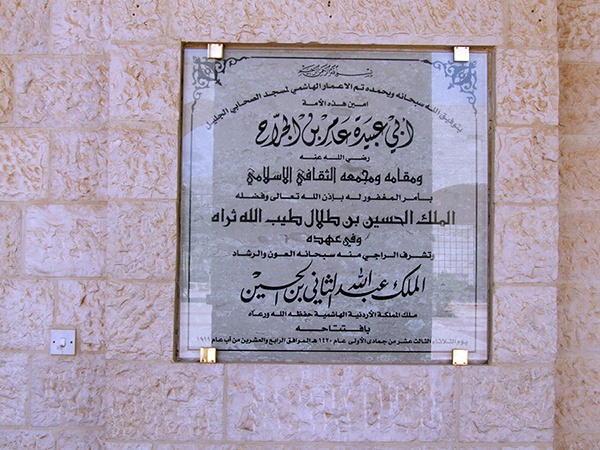 بسم الله الرحمن الرحيم
بتوفيق الله سبحانه وبحمده تم الاعمار الهاشمي لمسجد الصحابي الجليل
امين هذه الأمة
ابي عبيدة عامر بن الجراح
رضي الله عنه
ومقامه ومجمعه الثقافي الاسلامي
بأمر المغفور له بإذن الله تعالى وفضله
الملك الحسين بن طلال طيب الله ثراه
وفي عهده
وتشرف الراجي منه سبحانه العون والرشاد
الملك عبد الله الثاني بن الحسين
ملك المملكة الأردنية الهاشمية حفظه الله ورعاه
بافتتاحه
يوم الثلاثاء الثالث عشر من جمادى الأولى عام ١٤٢٠ هـ الموافق الرابع والعشرين من آب عام ١٩٩٩